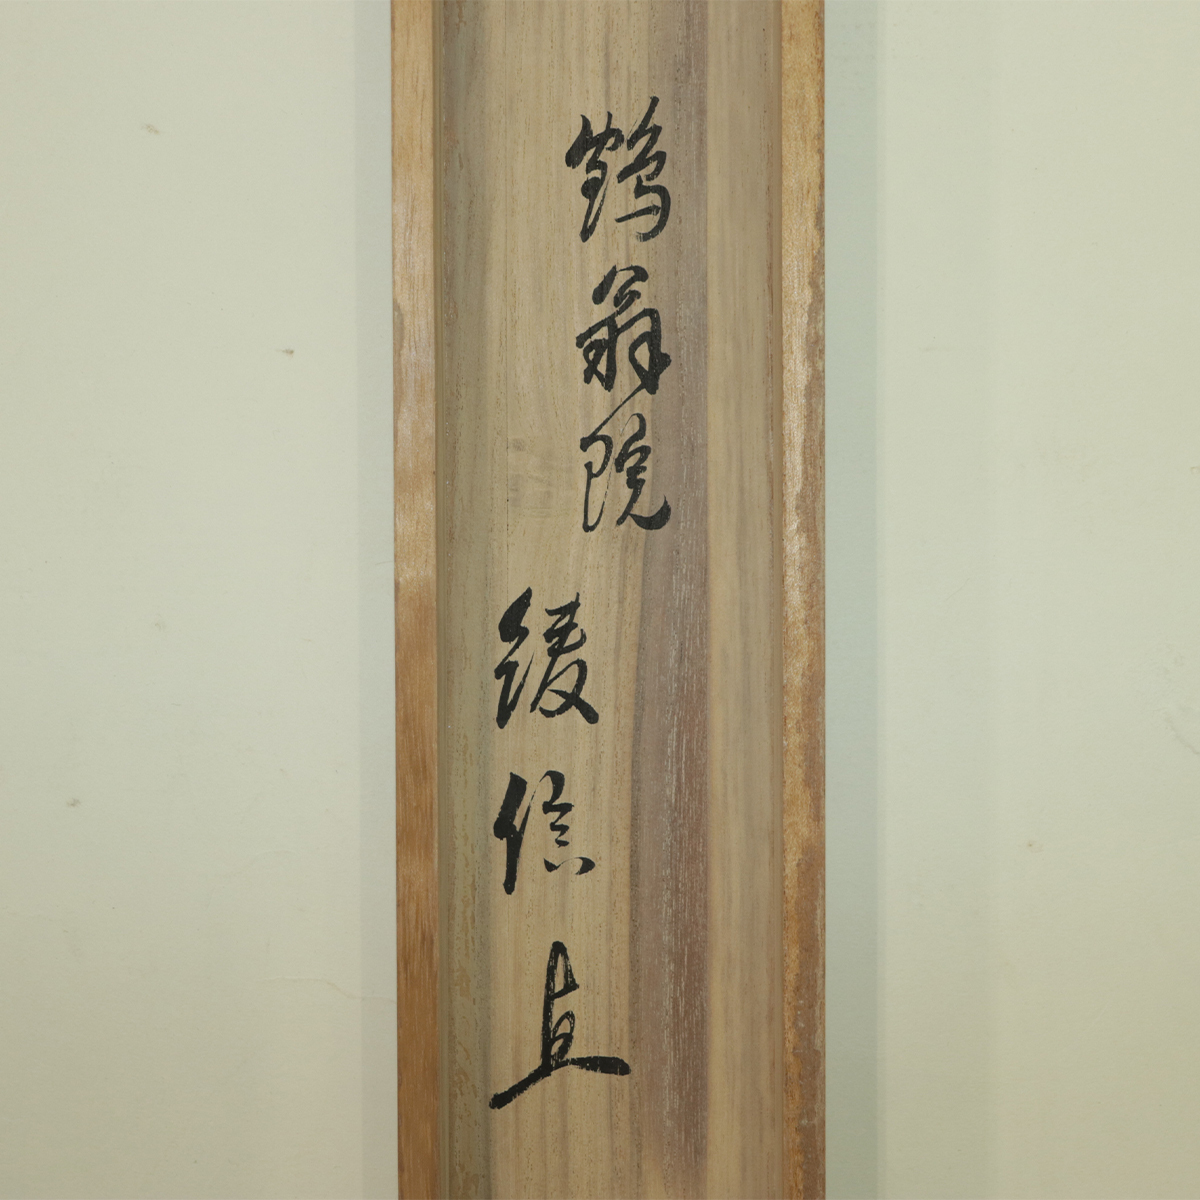 鶴翁院
綾信直